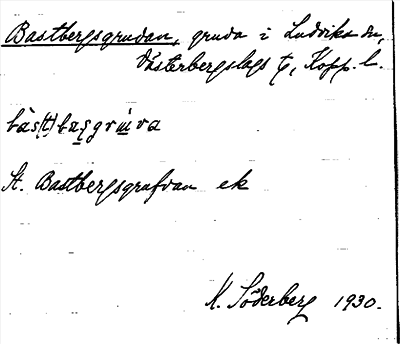 Bastbergsgruvan, gruva i Ludvika sn,
Västerbergslags tg, Kopp. l.
bàs(t)bæṣgrṵ̀va
St. Bastbergsgrufvan ek
K. Söderberg 1930.